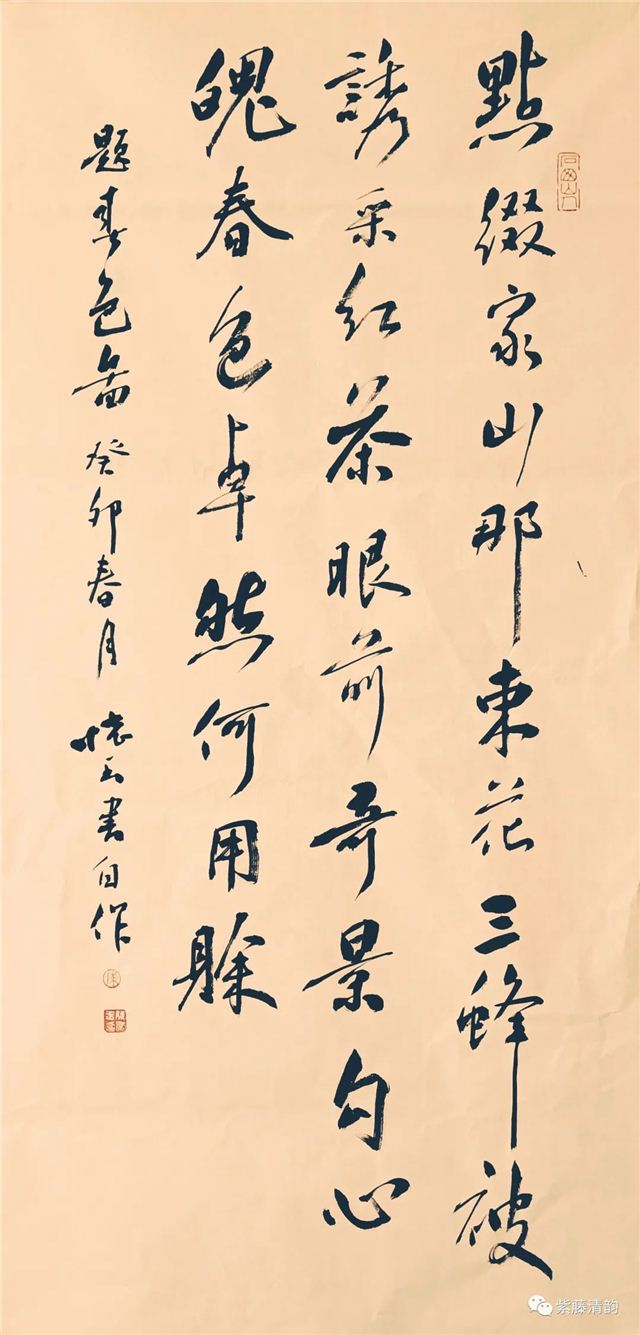 點綴家山那束花三蜂被
誘采红茶眼前奇景勾心
魄春色卓然何用賒
題春色圖 癸卯春月 懷書自作
紫藤清韵